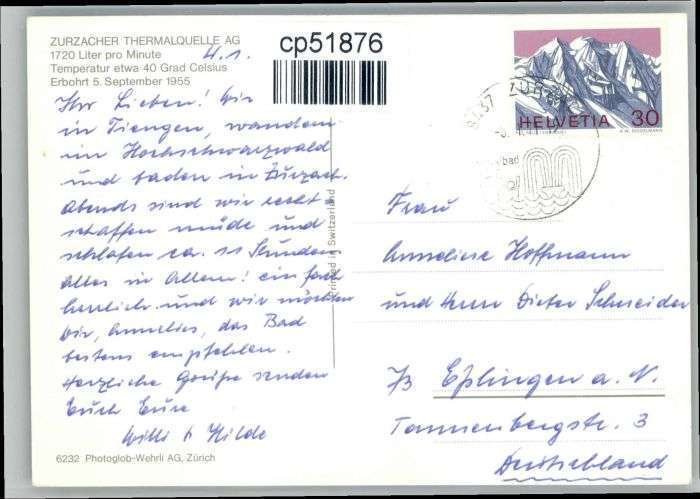 ZURZACHER THERMALQUELLE AG
1720 Liter pro Minute
Temperatur etwa 40 Grad Celsius
Erbohrt 5. September 1955
4.1.
cp51876
HELVETIA 30
8437 ZURZACH
Ihr Lieben! Wir
in Tiengen, wandern
im Hochschwarzwald
und baden in Zurzach.
Abends sind wir recht-
schaffen müde und
schlafen ca. 11 Stunden
alles in Allem! einfach
herrlich und wir möchten
Dir, Annelies, das Bad
bestens empfehlen.
Herzliche Grüße senden
Euch Eure
Willi + Hilde
6232 Photoglob-Wehrli AG, Zürich
Printed in Switzerland
Frau
Anneliese Hoffmann
und Herrn Dieter Schneider
73 Eßlingen a. N.
Tannenbergstr. 3
Deutschland